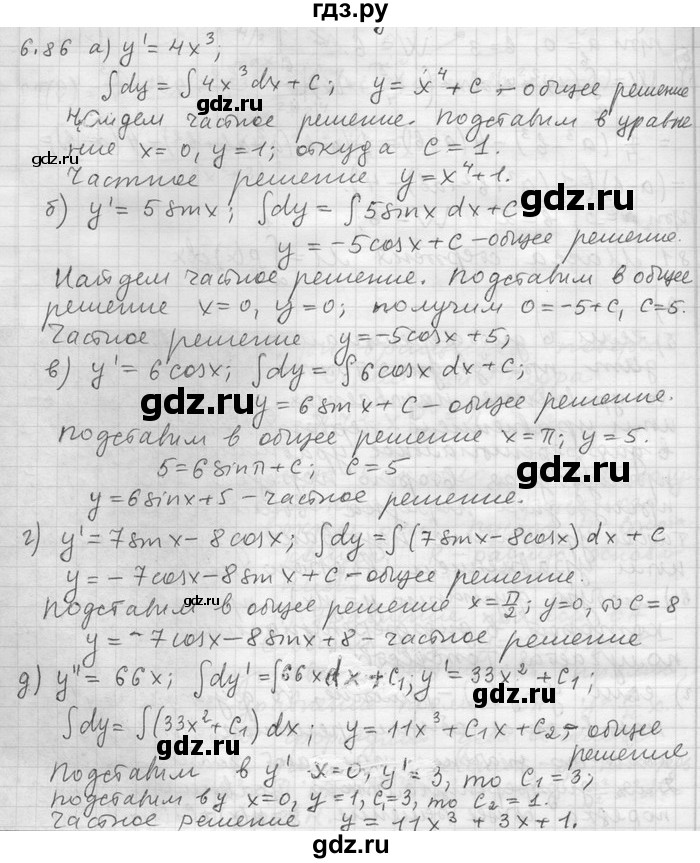 гдз.ру
6.86 а) y' = 4x³;
∫dy = ∫4x³dx + C; y = x⁴ + C – общее решение
Найдем частное решение. Подставим в уравне
ние x = 0, y = 1; откуда C = 1.
Частное решение y = x⁴ + 1.
б) y' = 5 sin x; ∫dy = ∫5 sin x dx + C
y = -5cos x + C – общее решение.
Найдем частное решение. Подставим в общее
решение x = 0, y = 0; получим 0 = -5 + C, C = 5.
Частное решение y = -5cos x + 5;
в) y' = 6 cos x; ∫dy = ∫6 cos x dx + C;
y = 6 sin x + C – общее решение.
Подставим в общее решение x = π; y = 5.
5 = 6 sin π + C; C = 5
y = 6 sin x + 5 – частное решение.
г) y' = 7 sin x – 8 cos x; ∫dy = ∫(7 sin x – 8cos x) dx + C
y = -7cos x – 8 sin x + C – общее решение.
Подставим в общее решение x = π/2; y = 0, то C = 8
y = -7 cos x – 8 sin x + 8 – частное решение
д) y'' = 66x; ∫dy' = ∫66x dx + C₁; y' = 33x² + C₁;
∫dy = ∫(33x² + C₁) dx; y = 11x³ + C₁x + C₂ – общее
решение
Подставим в y' x = 0, y' = 3, то C₁ = 3;
подставим в y x = 0, y = 1, C₁ = 3, то C₂ = 1.
Частное решение y = 11x³ + 3x + 1.
gdz.ru
gdz.ru
gdz.ru
gdz.ru
gdz.ru
gdz.ru
gdz.ru
gdz.ru
gdz.ru
gdz.ru
gdz.ru